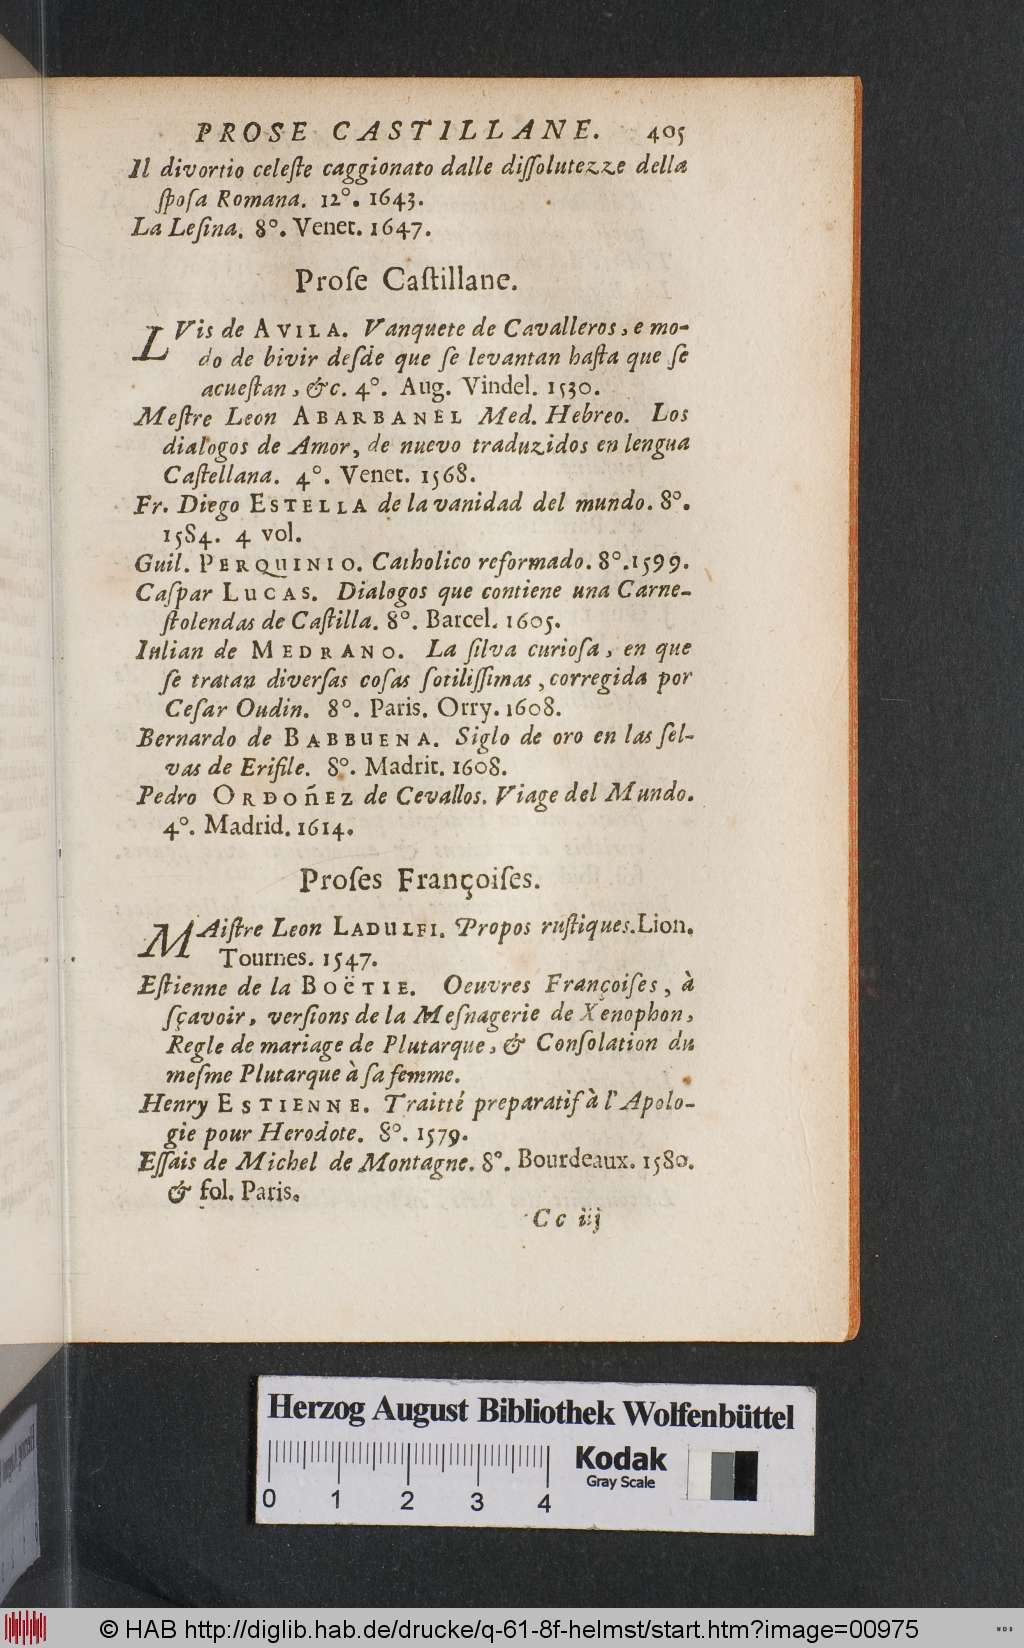 PROSE CASTILLANE. 405
Il divortio celeſte caggionato dalle diſſolutezze della
ſpoſa Romana. 12°. 1643.
La Leſina. 8°. Venet. 1647.
Proſe Caſtillane.
LVis de AVILA. Vanquete de Cavalleros, e mo-
do de bivir deſde que ſe levantan haſta que ſe
acueſtan, &c. 4°. Aug. Vindel. 1530.
Meſtre Leon ABARBANEL Med. Hebreo. Los
dialogos de Amor, de nuevo traduzidos en lengua
Caſtellana. 4°. Venet. 1568.
Fr. Diego ESTELLA de la vanidad del mundo. 8°.
1584. 4 vol.
Guil. PERQUINIO. Catholico reformado. 8°. 1599.
Caſpar LUCAS. Dialogos que contiene una Carne-
ſtolendas de Caſtilla. 8°. Barcel. 1605.
Iulian de MEDRANO. La ſilva curioſa, en que
ſe tratan diverſas coſas ſotiliſſimas, corregida por
Ceſar Oudin. 8°. Paris. Orry. 1608.
Bernardo de BABBUENA. Siglo de oro en las ſel-
vas de Erifile. 8°. Madrit. 1608.
Pedro ORDOñEZ de Cevallos. Viage del Mundo.
4°. Madrid. 1614.
Proſes Françoiſes.
MAiſtre Leon LADULFI. Propos ruſtiques. Lion.
Tournes. 1547.
Eſtienne de la BOËTIE. Oeuvres Françoiſes, à
ſçavoir, verſions de la Meſnagerie de Xenophon,
Regle de mariage de Plutarque, & Conſolation du
meſme Plutarque à ſa femme.
Henry ESTIENNE. Traitté preparatif à l'Apolo-
gie pour Herodote. 8°. 1579.
Eſſais de Michel de Montagne. 8°. Bourdeaux. 1580.
& fol. Paris.
Cc iij
Herzog August Bibliothek Wolfenbüttel
0 1 2 3 4
Kodak
Gray Scale
© HAB http://diglib.hab.de/drucke/q-61-8f-helmst/start.htm?image=00975